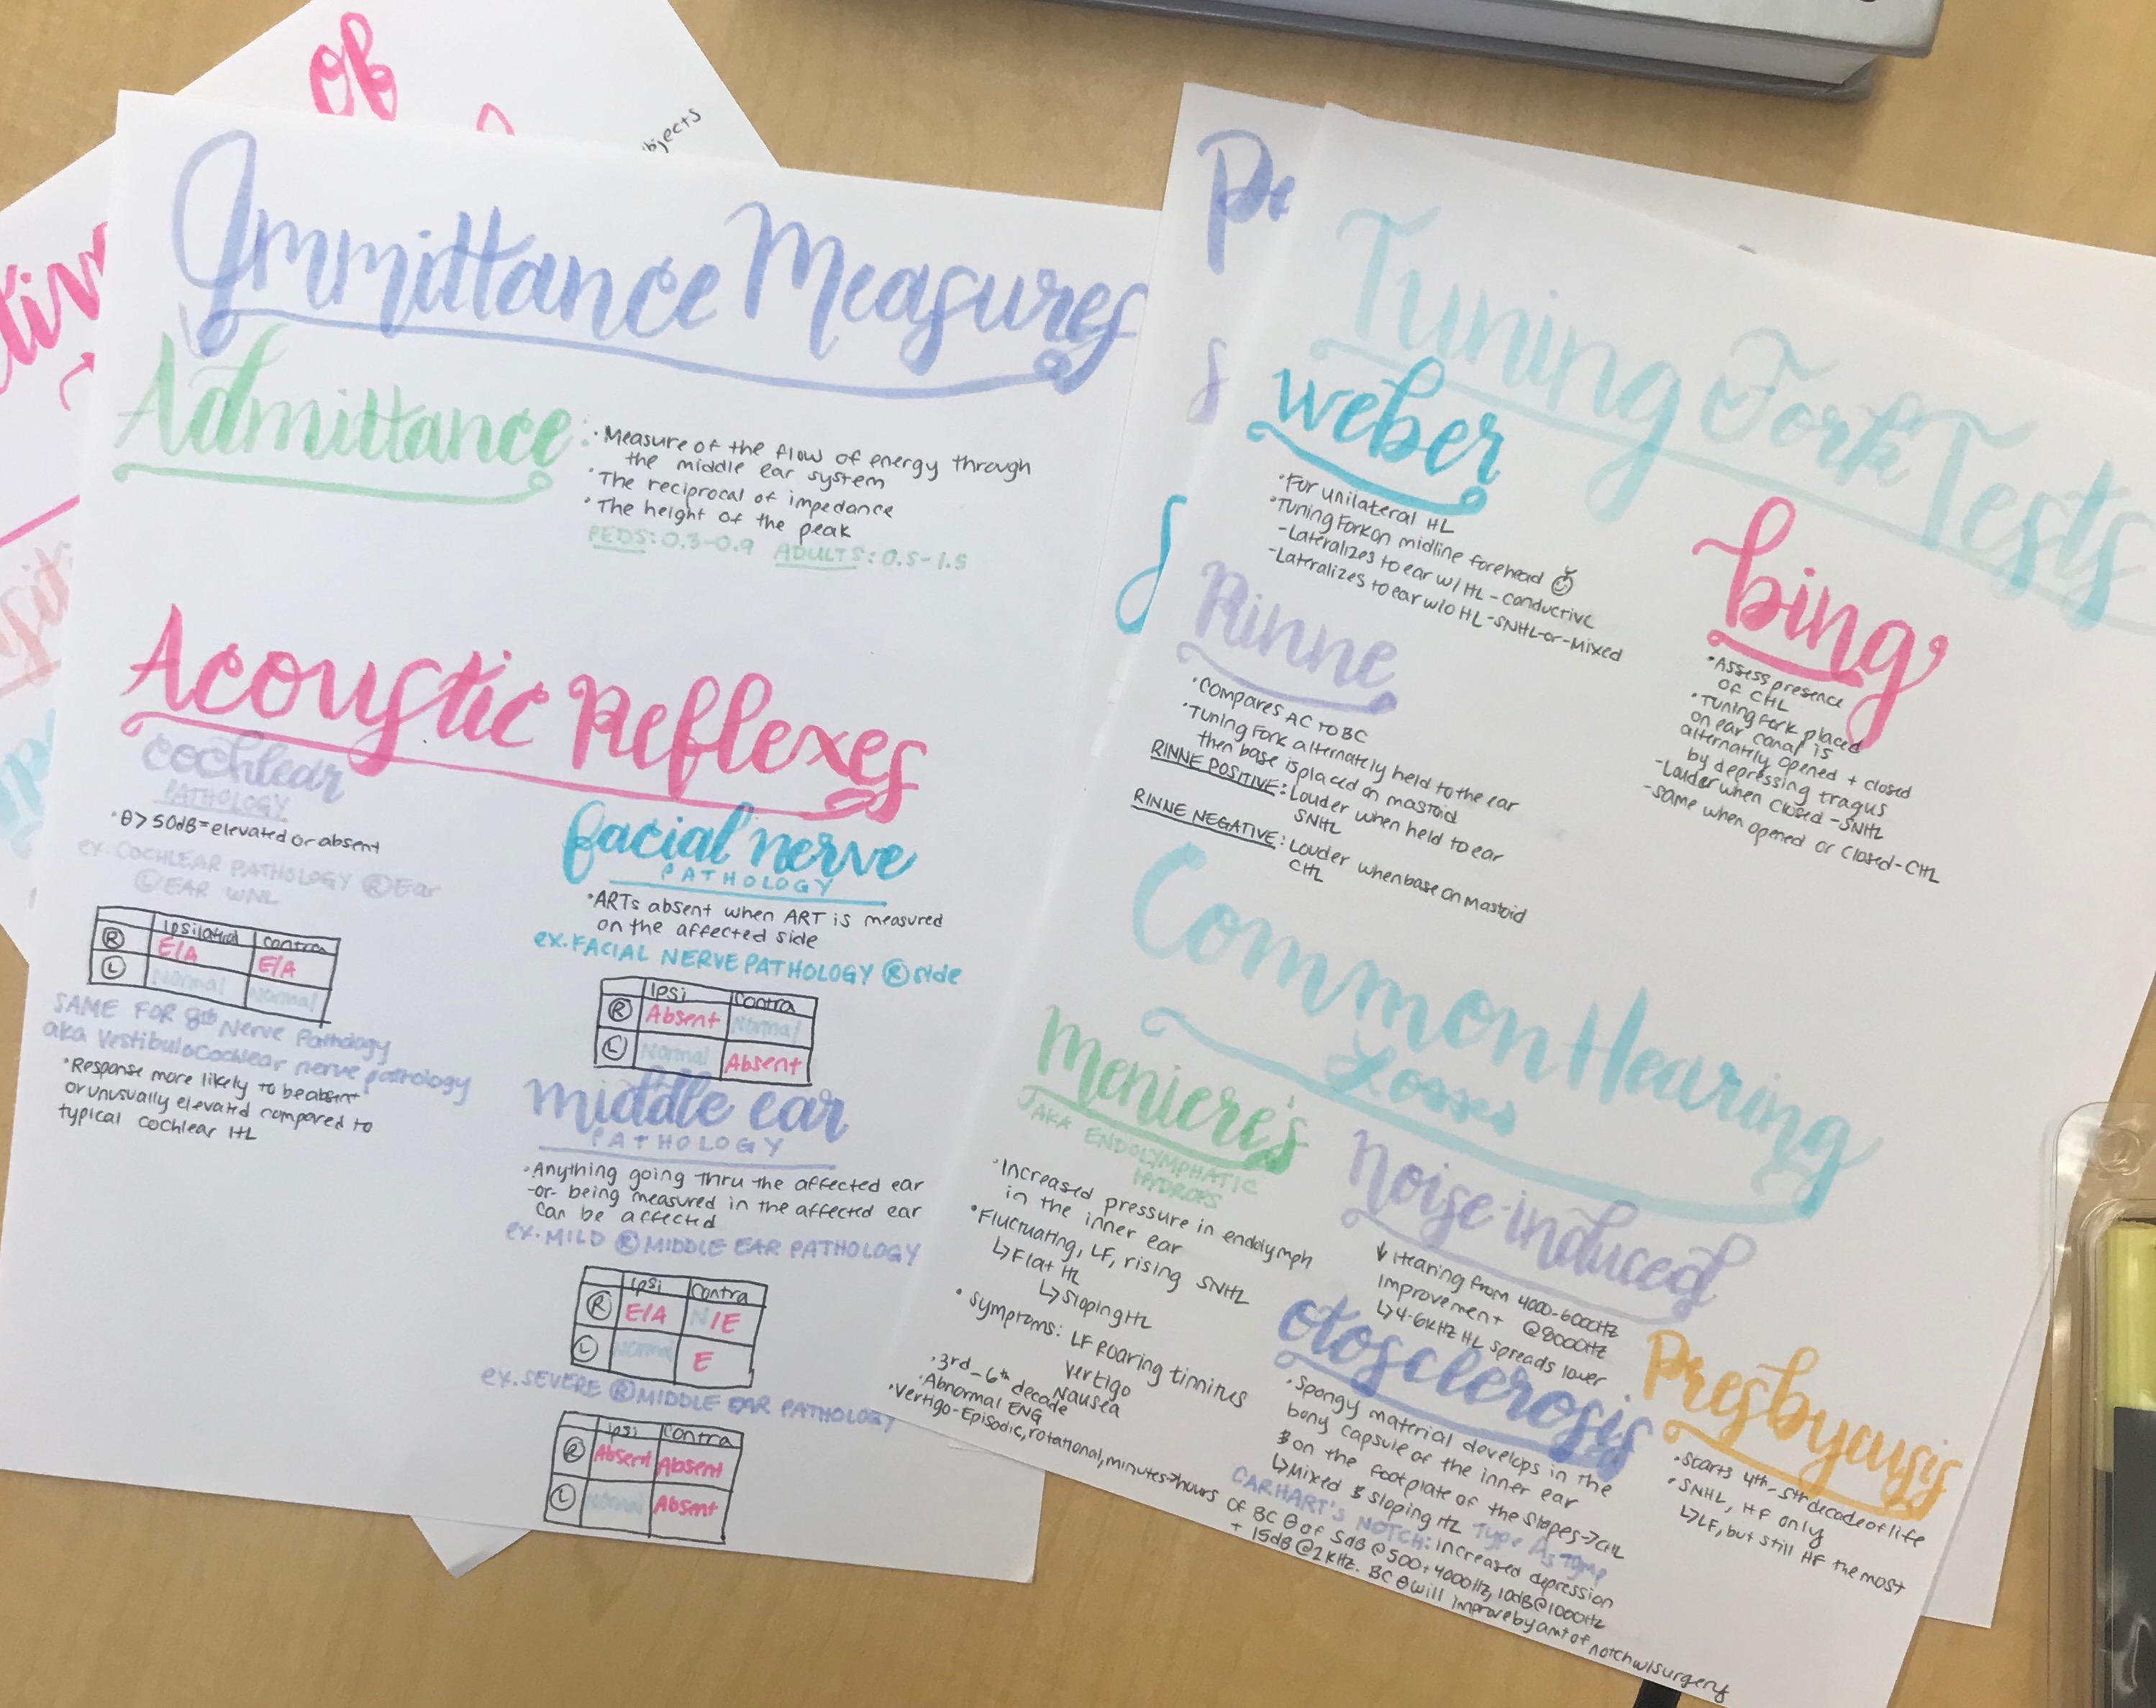 of
bjects
Immittance Measures
Admittance:
· Measure of the flow of energy through
the middle ear system
· The reciprocal of impedance
· The height of the peak
PEDS: 0.3-0.9 ADULTS: 0.5-1.5
Acoustic Reflexes
cochlear
PATHOLOGY
· θ > 50dB = elevated or absent
ex. COCHLEAR PATHOLOGY Ⓡ Ear
Ⓛ EAR WNL
Ipsilateral contra
Ⓡ E/A E/A
Ⓛ Normal Normal
SAME FOR 8th Nerve Pathology
aka Vestibulocochlear nerve pathology
· Response more likely to be absent
or unusually elevated compared to
typical cochlear HL
facial nerve
PATHOLOGY
· ARTs absent when ART is measured
on the affected side
ex. FACIAL NERVE PATHOLOGY Ⓡ side
Ipsi Contra
Ⓡ Absent Normal
Ⓛ Normal Absent
middle ear
PATHOLOGY
· Anything going thru the affected ear
-or- being measured in the affected ear
can be affected
ex. MILD Ⓡ MIDDLE EAR PATHOLOGY
Ipsi Contra
Ⓡ E/A N/E
Ⓛ Normal E
ex. SEVERE Ⓡ MIDDLE EAR PATHOLOGY
Ipsi Contra
Ⓡ Absent Absent
Ⓛ Normal Absent
Tuning Fork Tests
weber
· For unilateral HL
· Tuning Fork on midline forehead
- Lateralizes to ear w/ HL - conductive
- Lateralizes to ear w/o HL - SNHL-or-Mixed
Rinne
· Compares AC to BC
· Tuning Fork alternately held to the ear
then base is placed on mastoid
RINNE POSITIVE: Louder when held to ear
SNHL
RINNE NEGATIVE: Louder when base on mastoid
CHL
bing
· Assess presence
of CHL
· Tuning fork placed
on ear canal is
alternately opened + closed
by depressing tragus
- Louder when closed - SNHL
- same when opened or closed - CHL
Common Hearing
Losses
Meniere's
AKA ENDOLYMPHATIC
HYDROPS
· Increased pressure in endolymph
in the inner ear
· Fluctuating, LF, rising SNHL
↳ Flat HL
↳ Sloping HL
· Symptoms: LF Roaring tinnitus
Vertigo
Nausea
· 3rd-6th decade
· Abnormal ENG
· Vertigo-Episodic, rotational, minutes→hours
Noise-induced
↓ Hearing from 4000-6000Hz
Improvement @8000Hz
↳ 4-6KHz HL spreads lower
otosclerosis
· Spongy material develops in the
bony capsule of the inner ear
& on the footplate of the stapes → CHL
↳ Mixed & Sloping HL Type As Tymp
CARHART'S NOTCH: increased depression
of BC θ of 5dB @ 500 + 4000Hz, 10dB @ 1000Hz
+ 15dB @ 2KHz. BC θ will improve by amt of notch w/ surgery
Presbycusis
· Starts 4th-5th decade of life
· SNHL, HF only
↳ LF, but still HF the most